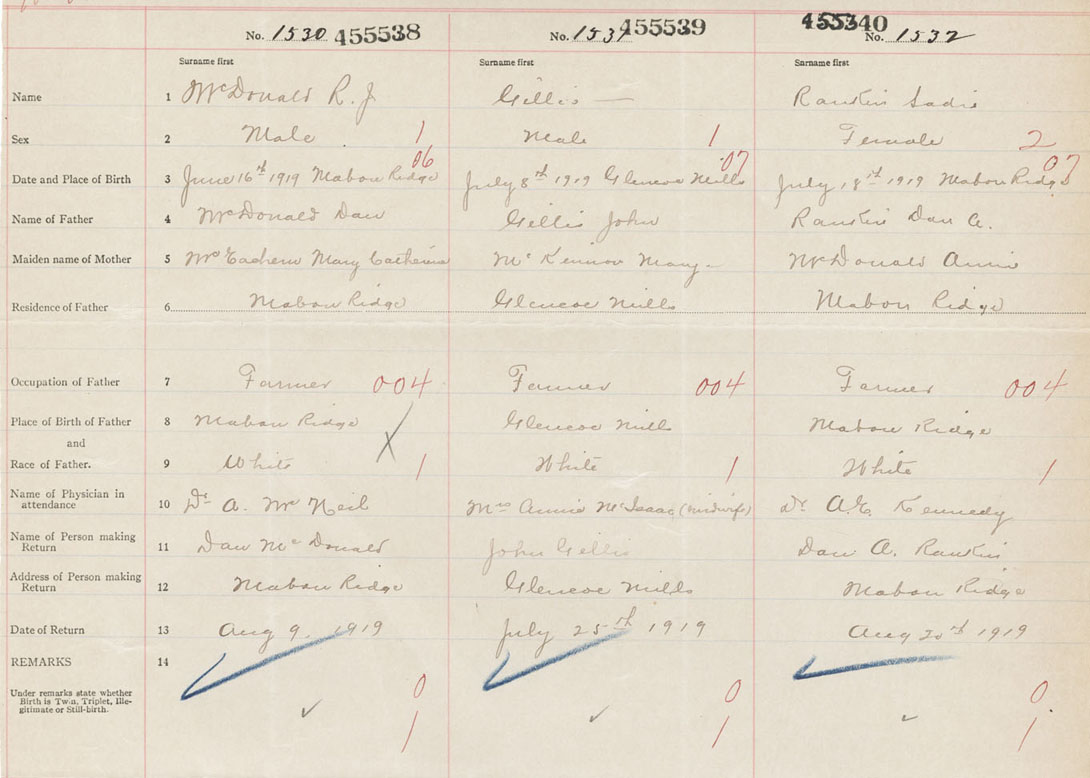 No. 1530 455538 No. 1531 455539 455340 No. 1532
Surname first Surname first Surname first
Name 1 McDonald R. J. Gillis — Rankin Sadie
Sex 2 Male 1 Male 1 Female 2
06 07 07
Date and Place of Birth 3 June 16th 1919 Mabou Ridge July 8th 1919 Glencoe Mills July 18th 1919 Mabou Ridge
Name of Father 4 McDonald Dan Gillis John Rankin Dan A.
Maiden name of Mother 5 McEachern Mary Catherine McKinnon Mary McDonald Annie
Residence of Father 6 Mabou Ridge Glencoe Mills Mabou Ridge
Occupation of Father 7 Farmer 004 Farmer 004 Farmer 004
Place of Birth of Father 8 Mabou Ridge Glencoe Mills Mabou Ridge
and X
Race of Father. 9 White 1 White 1 White 1
Name of Physician in
attendance 10 Dr A. McNeil Mrs Annie McIsaac (midwife) Dr. A.E. Kennedy
Name of Person making
Return 11 Dan McDonald John Gillis Dan A. Rankin
Address of Person making
Return 12 Mabou Ridge Glencoe Mills Mabou Ridge
Date of Return 13 Aug 9, 1919 July 25th 1919 Aug 20th 1919
REMARKS 14
Under remarks state whether 0 0 0
Birth is Twin, Triplet, Ille-
gitimate or Still-birth.
1 1 1